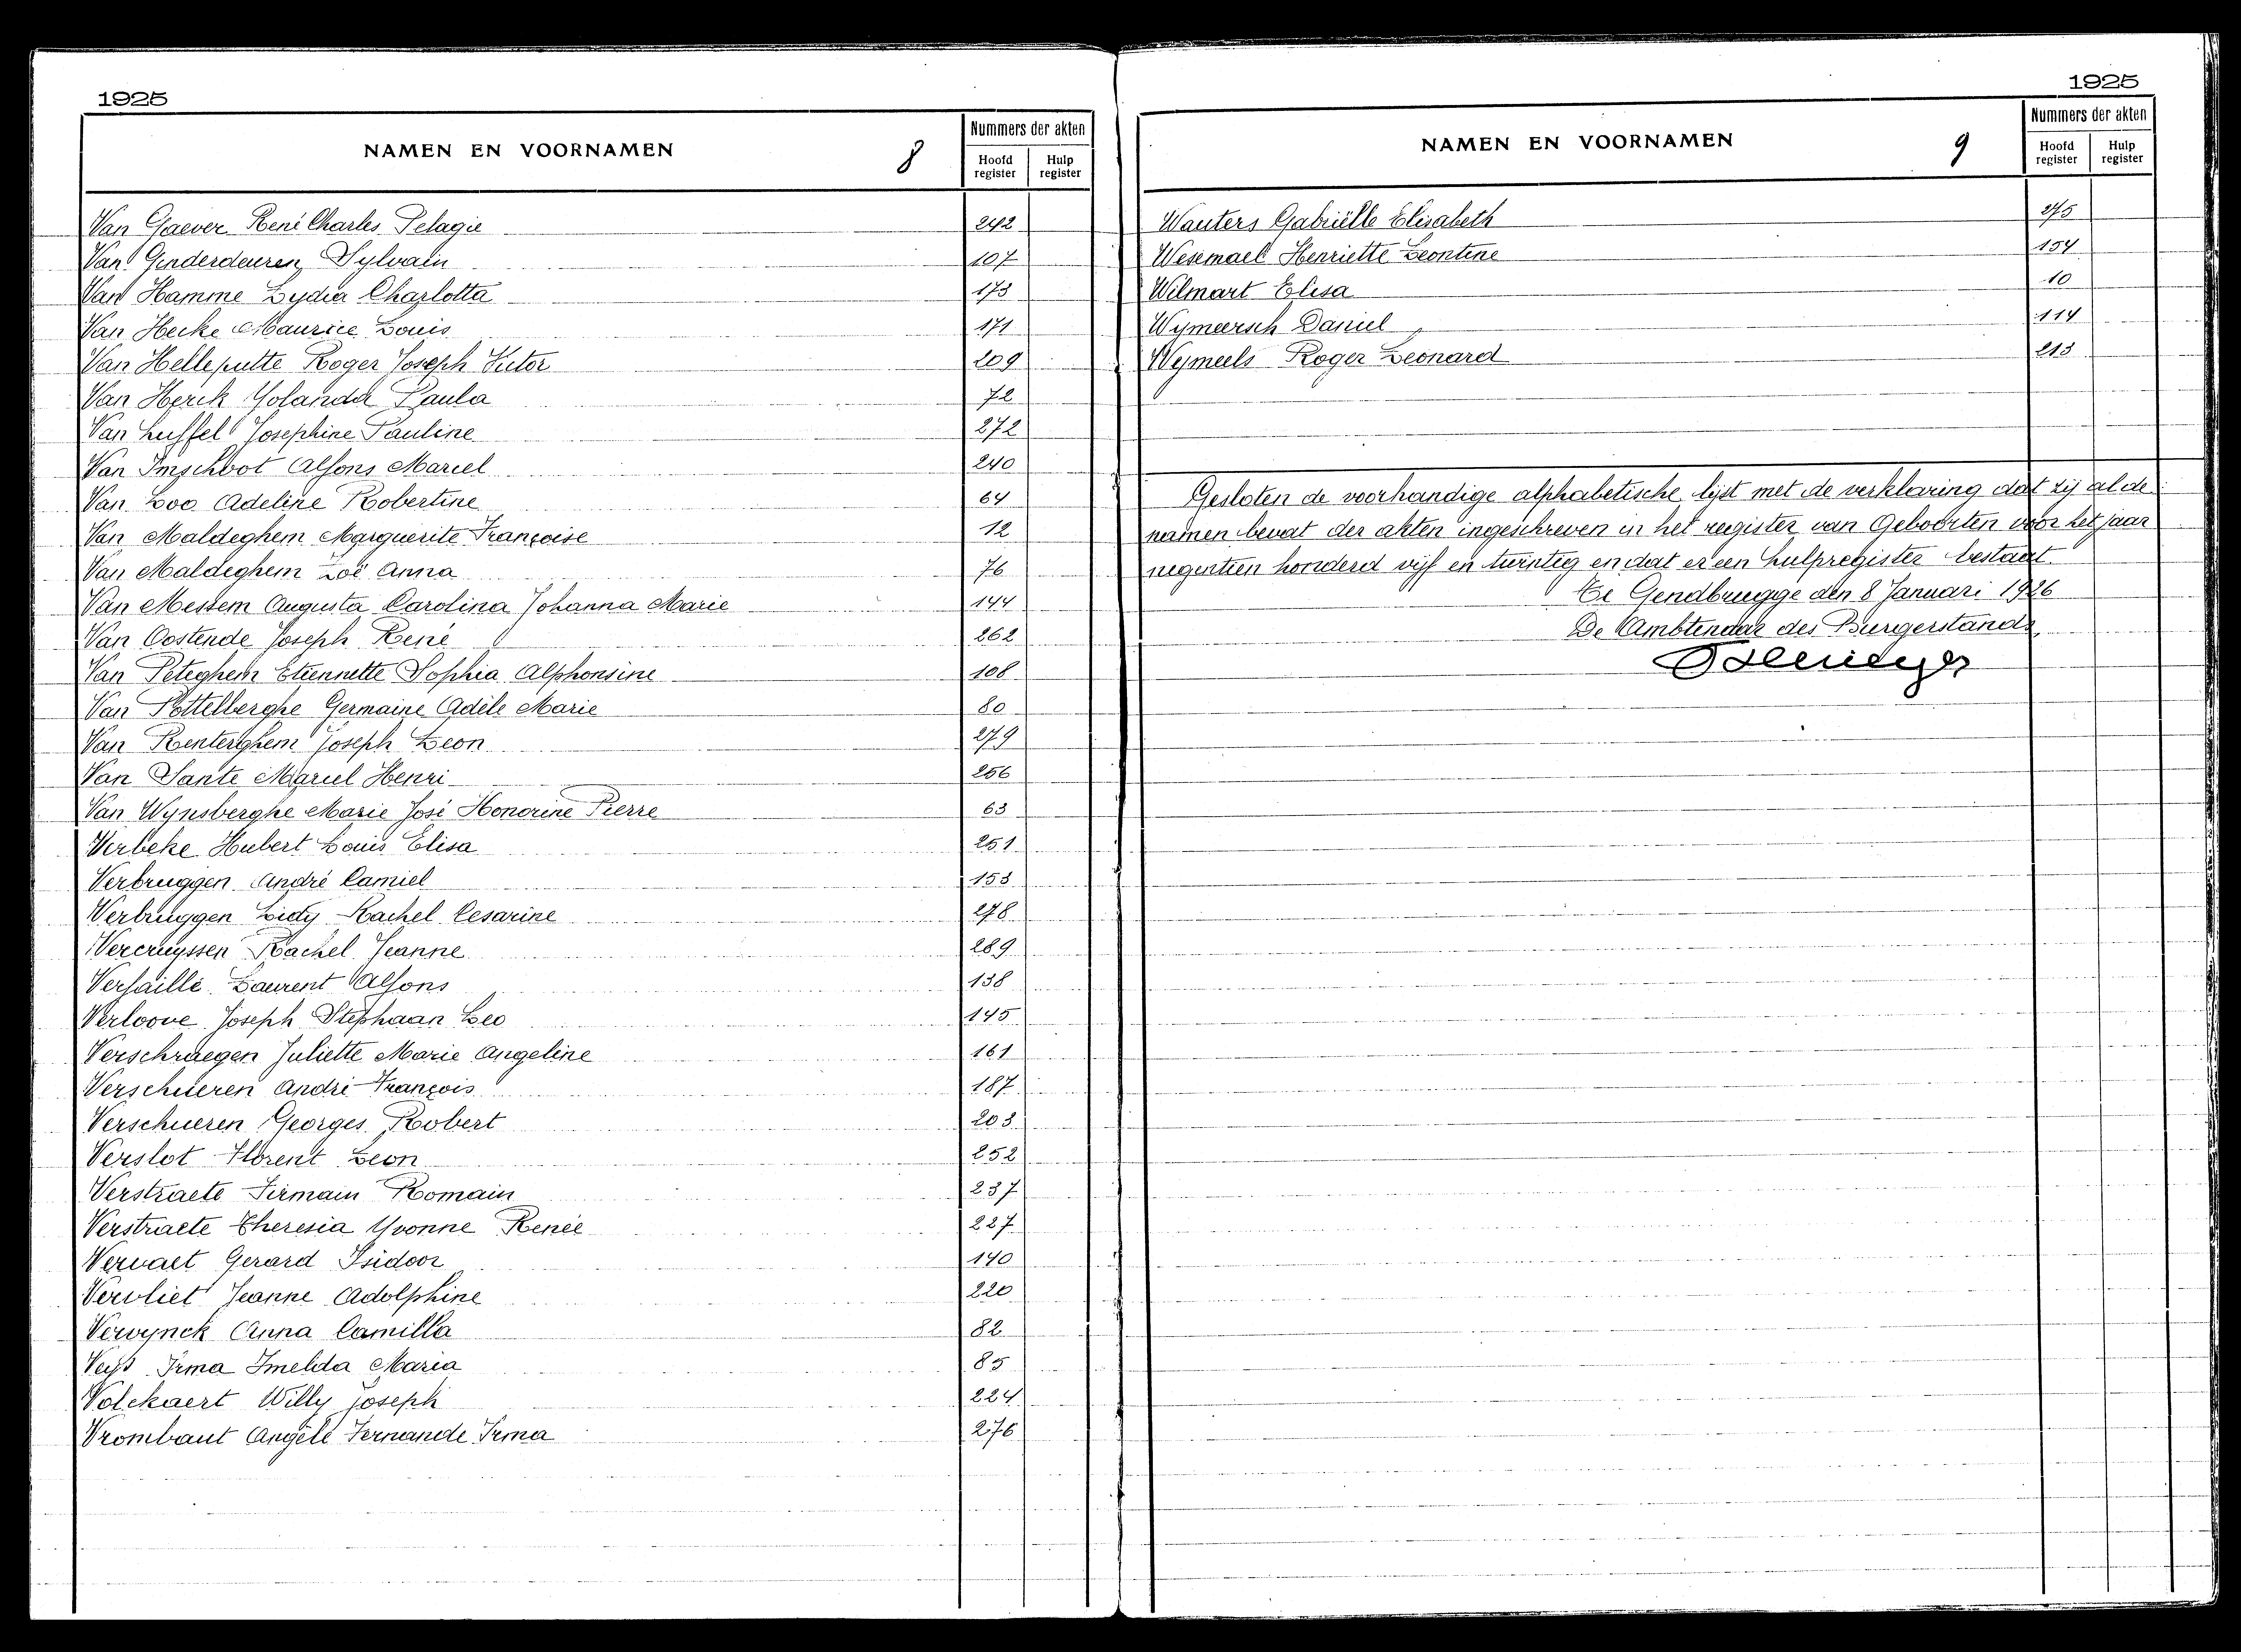 1925
NAMEN EN VOORNAMEN 8
Nummers der akten
Hoofd register
Hulp register
Van Gaever René Charles Pelagie 242
Van Ginderdeuren Sylvain 107
Van Hamme Lydia Charlotta 173
Van Hecke Maurice Louis 171
Van Helleputte Roger Joseph Victor 209
Van Herck Yolanda Paula 72
Van Huffel Josephine Pauline 272
Van Imschoot Alfons Marcel 240
Van Loo Adeline Robertine 64
Van Maldeghem Marguerite Françoise 12
Van Maldeghem Zoë Anna 76
Van Messem Augusta Carolina Johanna Marie 144
Van Oostende Joseph René 262
Van Peteghem Etiennette Sophia Alphonsine 108
Van Pottelberghe Germaine Adèle Marie 80
Van Renterghem Joseph Leon 279
Van Sante Marcel Henri 256
Van Wynsberghe Marie José Honorine Pierre 63
Verbeke Hubert Louis Elisa 251
Verbruggen André Camiel 153
Verbruggen Lidy Rachel Cesarine 278
Vercruyssen Rachel Jeanne 289
Verfaille Laurent Alfons 138
Verloove Joseph Stephaan Leo 145
Verschraegen Juliette Marie Angeline 161
Verschueren André François 187
Verschueren Georges Robert 203
Verslot Florent Leon 252
Verstraete Firmain Romain 237
Verstraete Theresia Yvonne Renée 227
Vervaet Gerard Isidoor 140
Vervliet Jeanne Adolphine 220
Verwynck Anna Camilla 82
Veys Irma Imelda Maria 85
Volckaert Willy Joseph 224
Vrombaut Angèle Fernande Irma 276
1925
NAMEN EN VOORNAMEN 9
Nummers der akten
Hoofd register
Hulp register
Wauters Gabriëlle Elisabeth 275
Wesemael Henriette Leontine 154
Wilmart Elisa 10
Wymeersch Daniel 114
Weymeels Roger Leonard 213
Gesloten de voorhandige alphabetische lijst met de verklaring dat zij al de
namen bevat der akten ingeschreven in het register van Geboorten voor het jaar
negentien honderd vijf en twintig en dat er een hulpregister bestaat.
Te Gendbrugge den 8 Januari 1926
De Ambtenaar des Burgerstands,